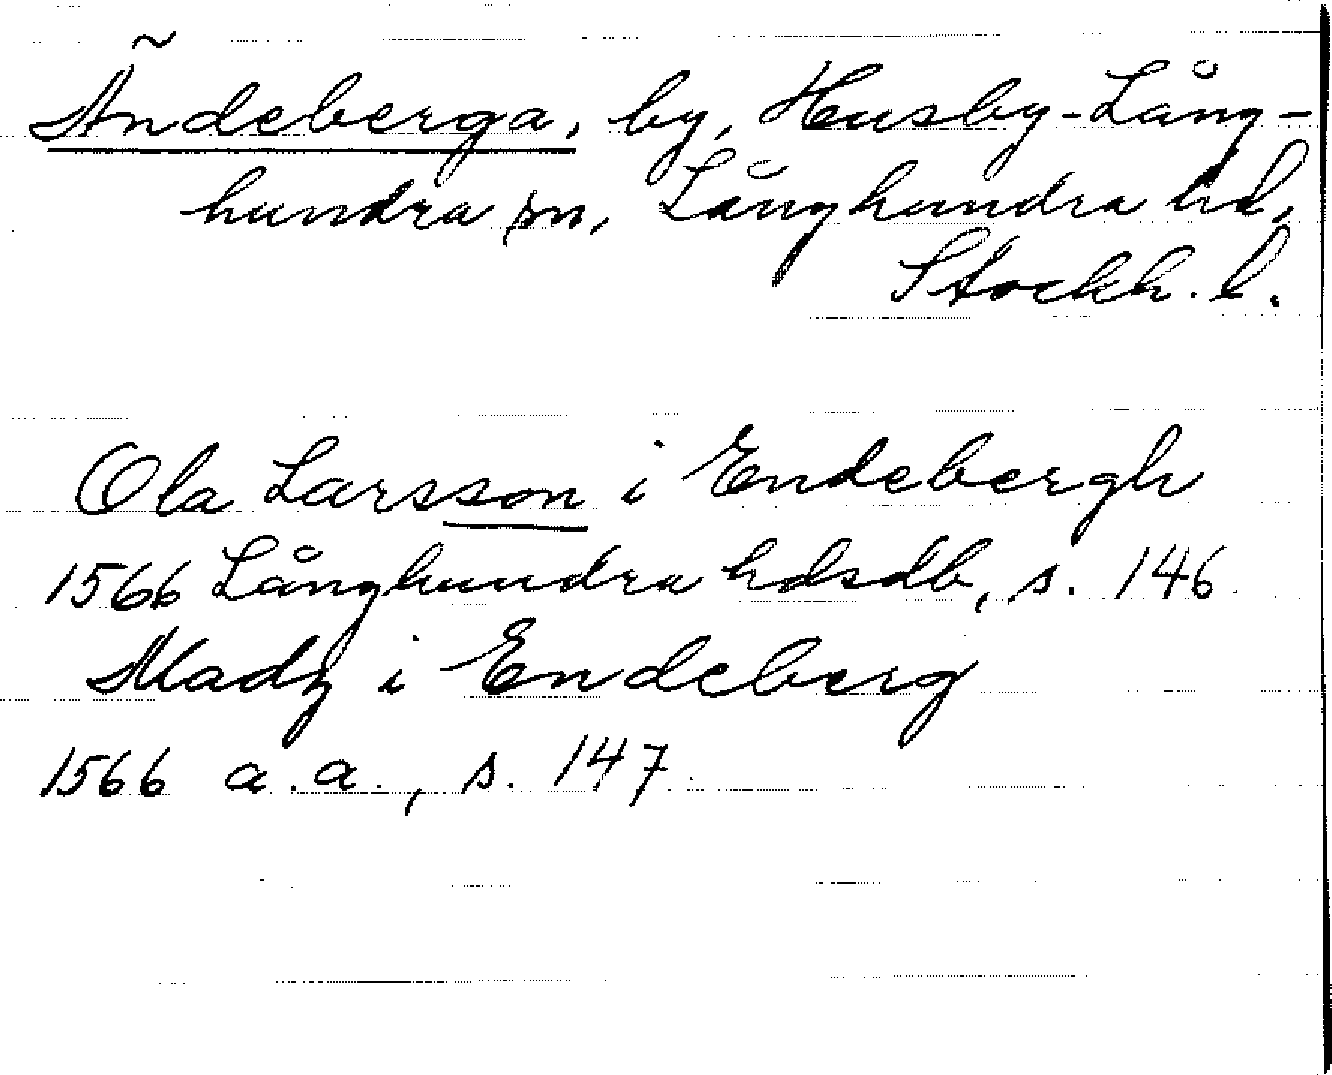 Ändeberga, by, Husby-Lång-
hundra sn, Långhundra hd,
Stockh. l.
Ola Larsson i Endebergh
1566 Långhundra hdsdb, s. 146
Madz i Endeberg
1566 a.a., s. 147